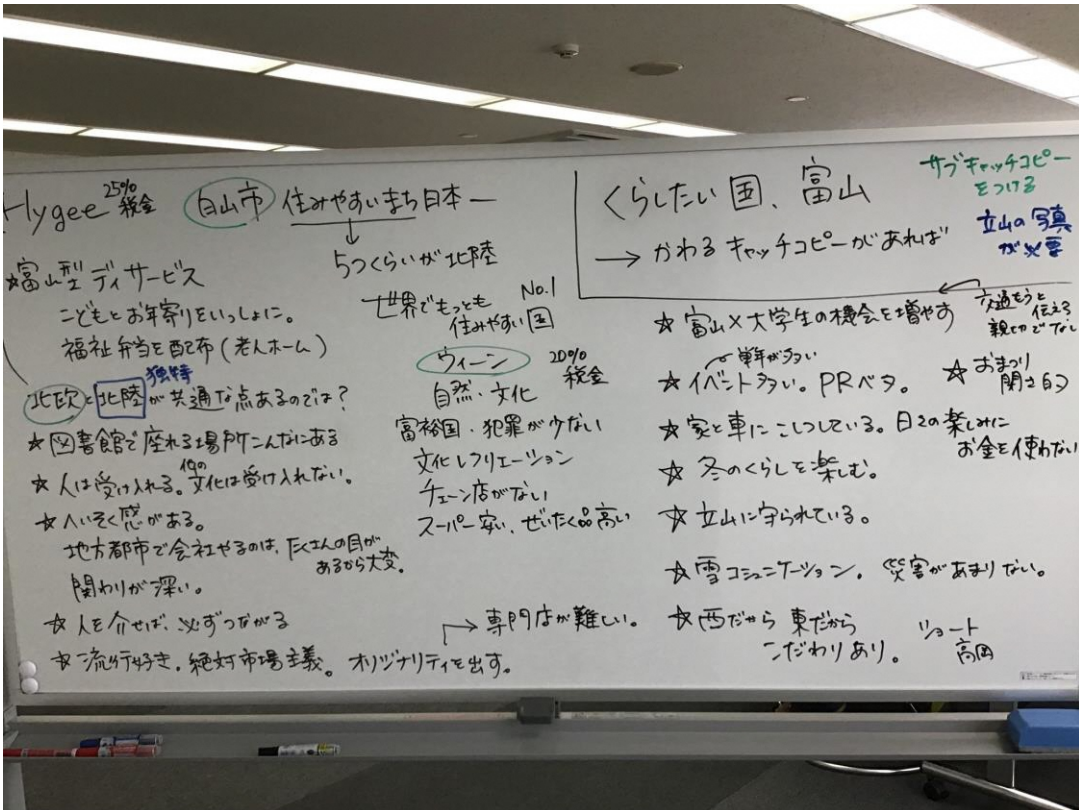 Hygee 25% 税金
白山市 住みやすいまち日本一
↓
5つくらいが北陸
★富山型デイサービス
こどもとお年寄りをいっしょに。
福祉弁当を配布(老人ホーム)
独特
北欧と北陸が共通な点あるのでは?
☆図書館で座れる場所こんなにある
☆人は受け入れる。他の文化は受け入れない。
☆へいそく感がある。
地方都市で会社やるのは、たくさんの目が
あるから大変。
関わりが深い。
☆人を介せば、必ずつながる
☆流行好き。絶対市場主義。オリジナリティを出す。
→専門店が難しい。
世界でもっとも No.1
住みやすい国
ウィーン 20% 税金
自然・文化
富裕国・犯罪が少ない
文化レクリエーション
チェーン店がない
スーパー安い、ぜいたく品高い
くらしたい国、富山
→ かわるキャッチコピーがあれば
サブキャッチコピー
をつける
立山の写真
が必要
☆富山×大学生の機会を増やす
交通もうと
伝える
親切でない
☆イベント多い。PRベタ。
単年が多い
☆おまつり
閉さ的
☆家と車にこしつしている。日々の楽しみに
お金を使わない
☆冬のくらしを楽しむ。
☆立山に守られている。
☆雪コミュニケーション。災害があまりない。
☆西だから 東だから
こだわりあり。
ショート
高岡